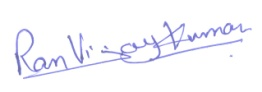 Ran Vijay Kumar